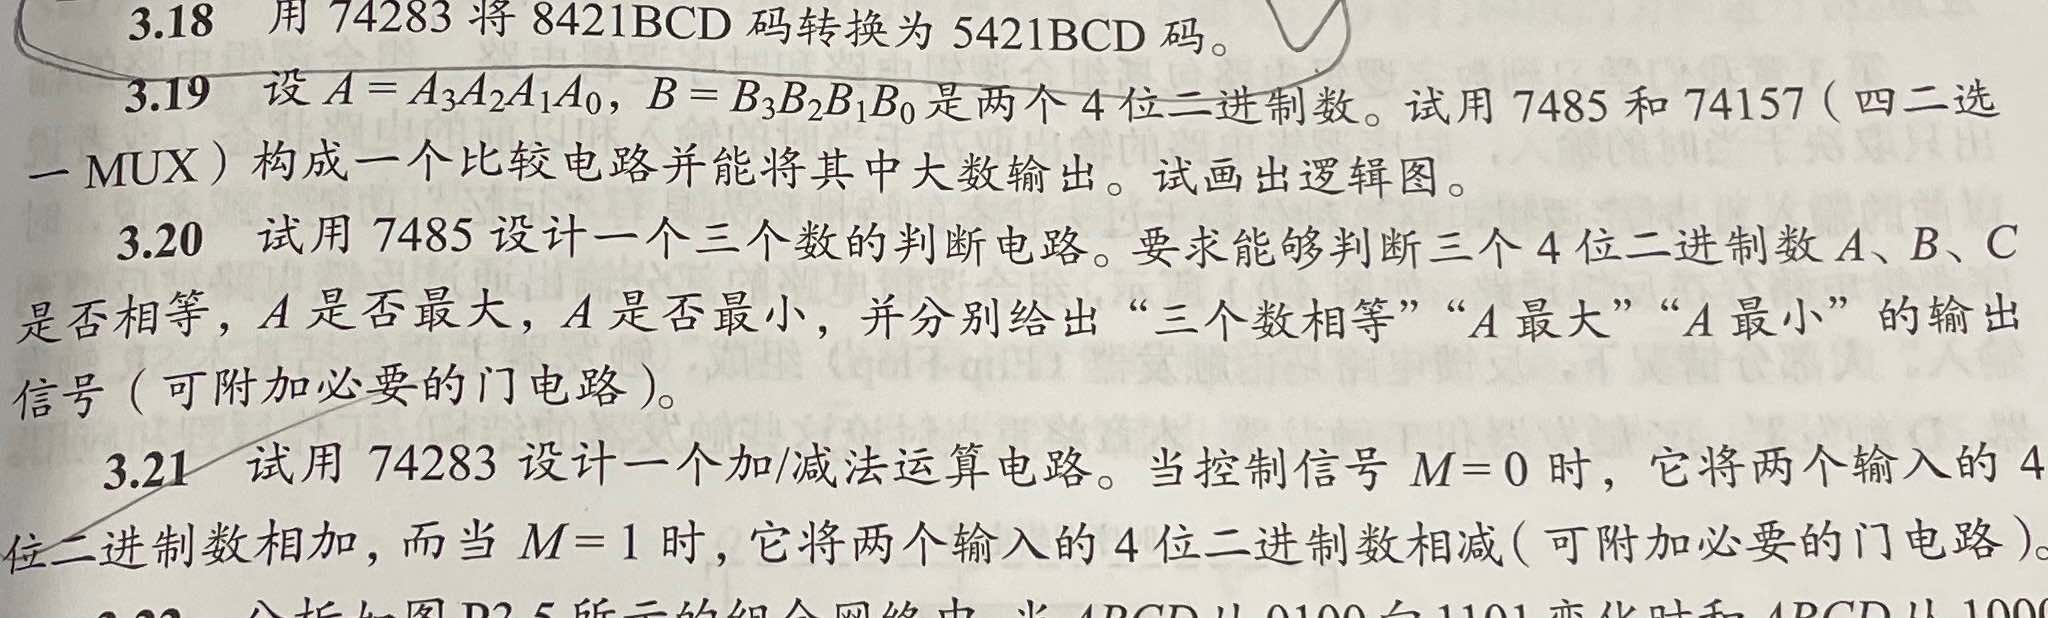 3.18 用 74283 将 8421BCD 码转换为 5421BCD 码。
3.19 设 A = A₃A₂A₁A₀, B = B₃B₂B₁B₀ 是两个 4 位二进制数。试用 7485 和 74157 ( 四二选
一 MUX ) 构成一个比较电路并能将其中大数输出。试画出逻辑图。
3.20 试用 7485 设计一个三个数的判断电路。要求能够判断三个 4 位二进制数 A、B、C
是否相等，A 是否最大，A 是否最小，并分别给出“三个数相等”“A 最大”“A 最小”的输出
信号 ( 可附加必要的门电路 )。
3.21 试用 74283 设计一个加/减法运算电路。当控制信号 M = 0 时，它将两个输入的 4
位二进制数相加，而当 M = 1 时，它将两个输入的 4 位二进制数相减 ( 可附加必要的门电路 )。